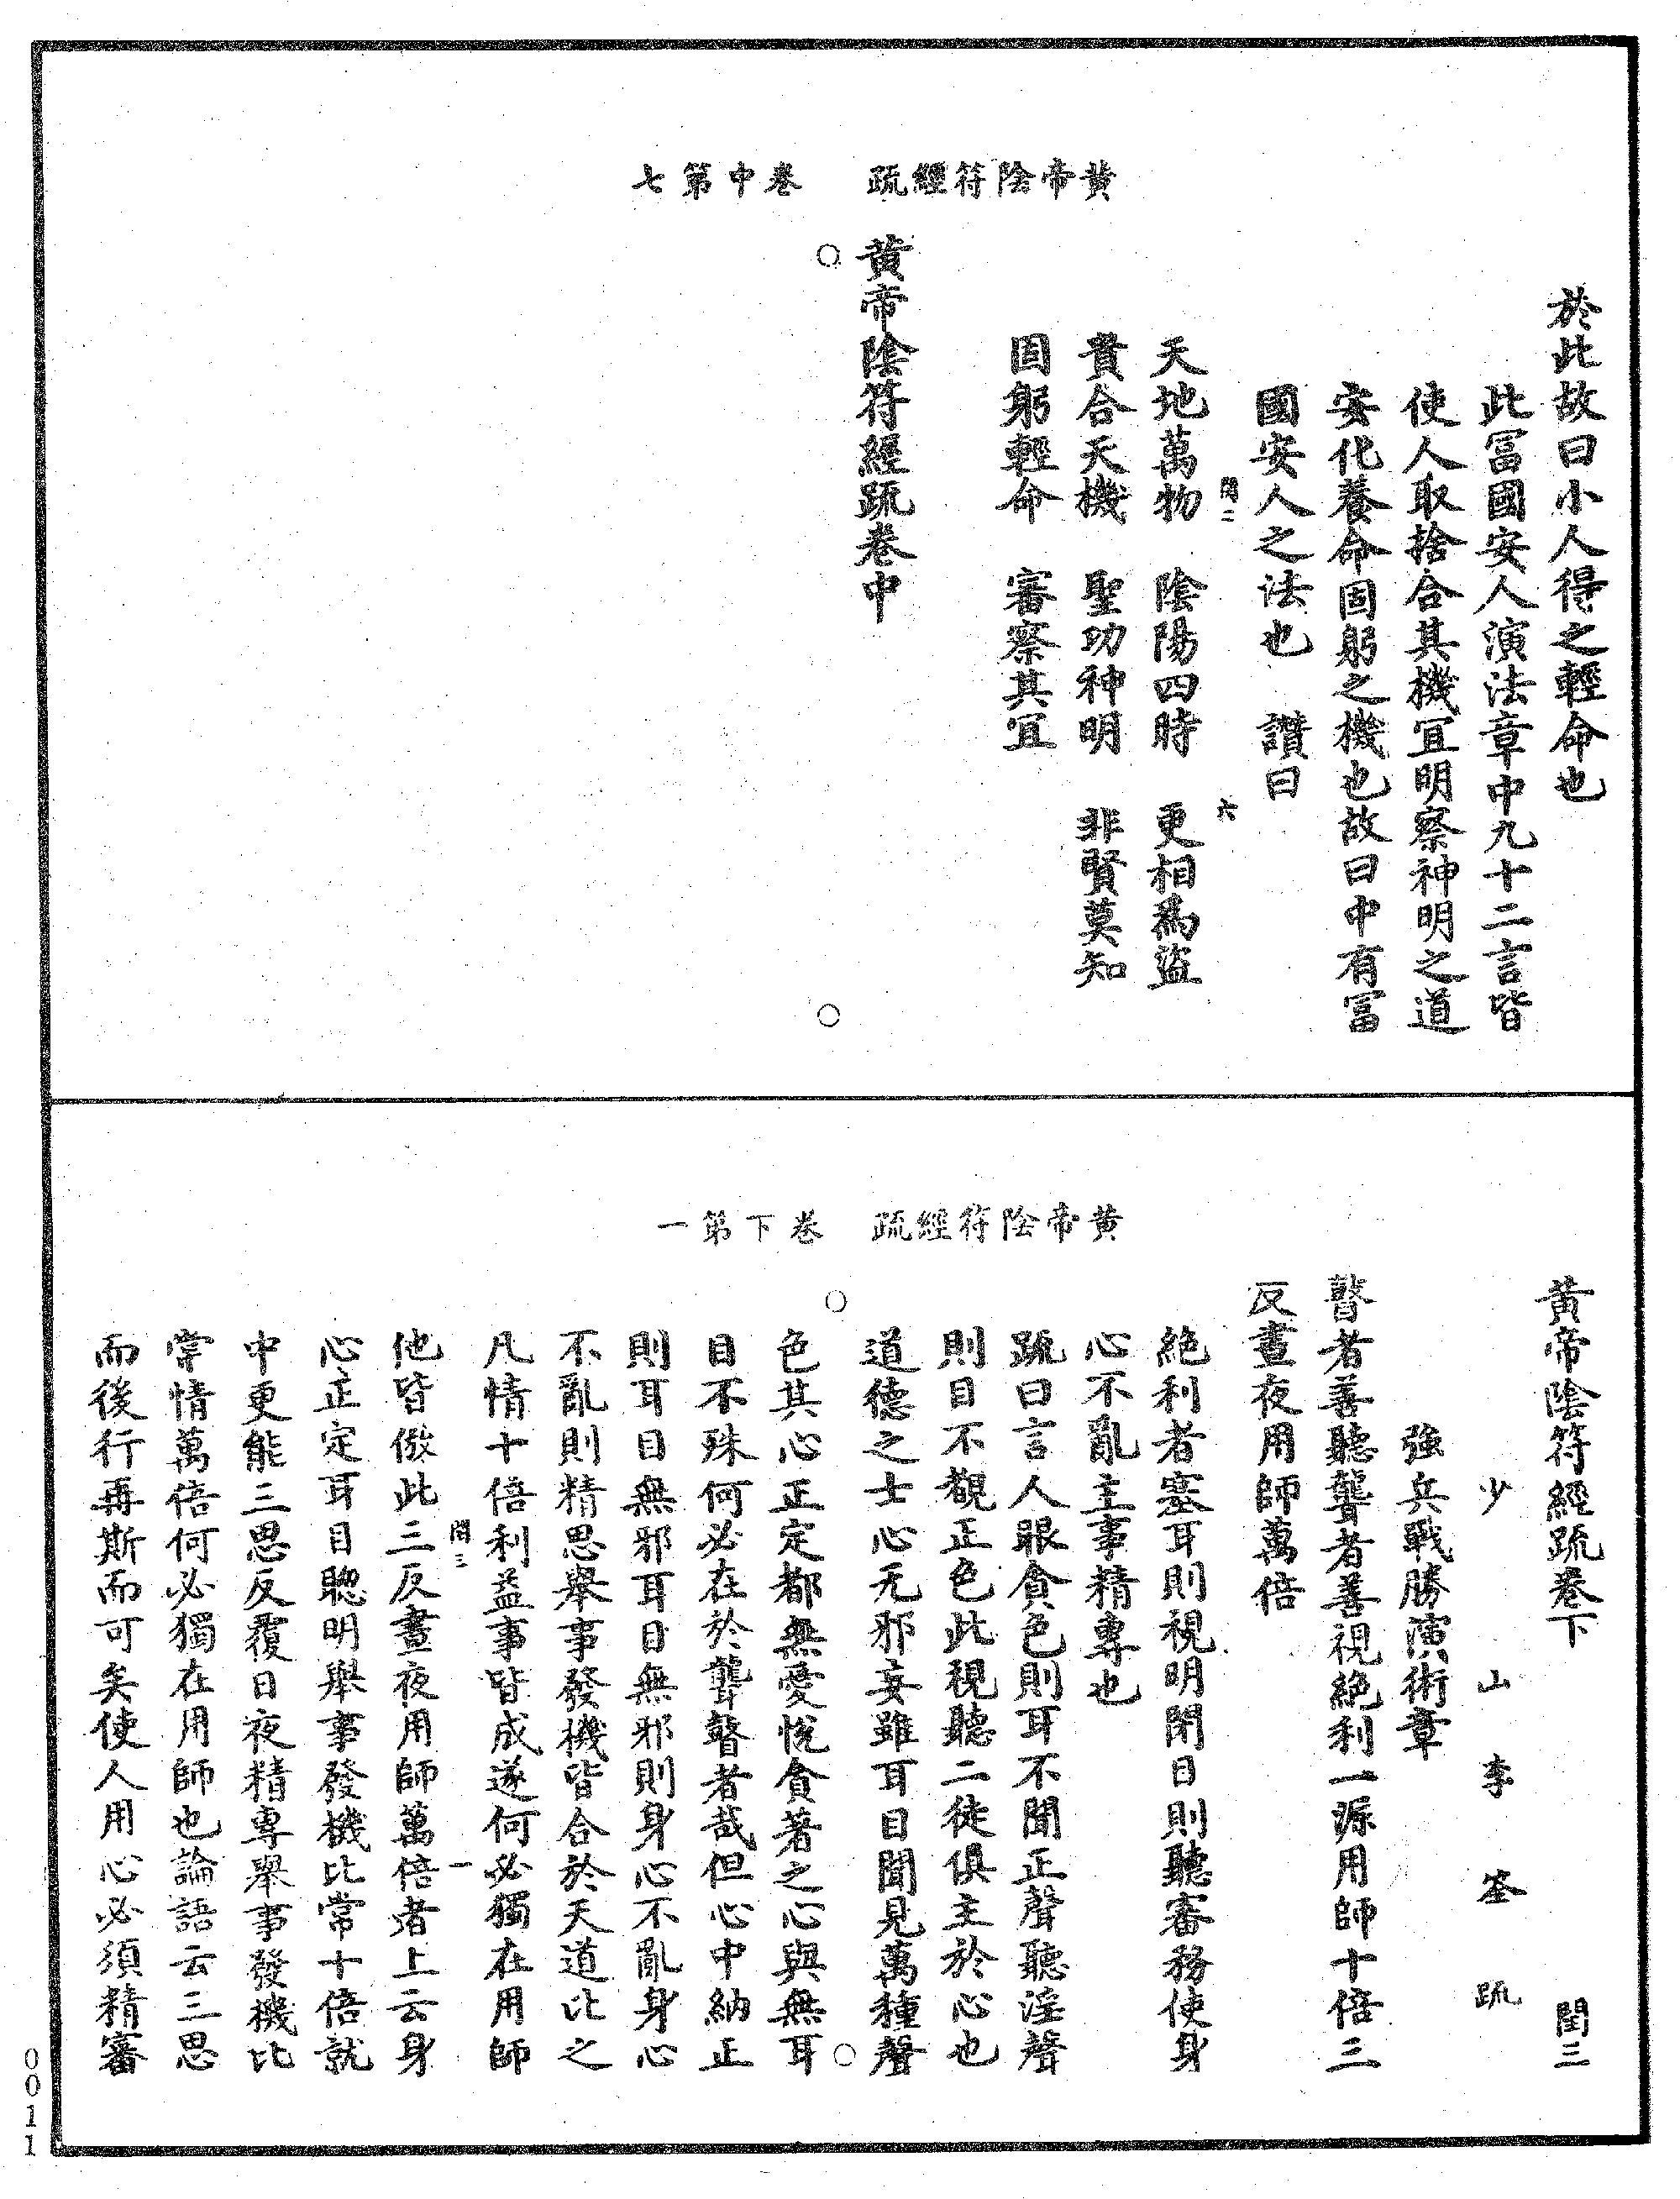 黃帝陰符經疏　卷中第七
於此故曰小人得之輕命也
此冨國安人演法章中九十二言皆
使人取捨合其機冝明察神明之道
安化養命固躬之機也故曰中有冨
國安人之法也　讃曰
閏二　六
天地萬物　陰陽四時　更相為盜
貴合天機　聖功神明　非賢莫知
固躬輕命　審察其冝
黃帝陰符經疏卷中
黃帝陰符經疏　卷下第一
黃帝陰符經疏卷下　閏三
少山李筌疏
強兵戰勝演術章
瞽者善聽聾者善視絕利一源用師十倍三
反晝夜用師萬倍
絕利者塞耳則視明閉目則聽審務使身
心不亂主事精專也
疏曰言人眼貪色則耳不聞正聲聽淫聲
則目不覩正色此視聽二徒俱主於心也
道德之士心无邪妄雖耳目聞見萬種聲
色其心正定都無愛悅貪著之心與無耳
目不殊何必在於聾瞽者哉但心中納正
則耳目無邪耳目無邪則身心不亂身心
不亂則精思舉事發機皆合於天道比之
凡情十倍利益事皆成遂何必獨在用師
閏三　一
他皆倣此三反晝夜用師萬倍者上云身
心正定耳目聰明舉事發機比常十倍就
中更能三思反覆日夜精專舉事發機比
常情萬倍何必獨在用師也論語云三思
而後行再斯而可矣使人用心必須精審
0011